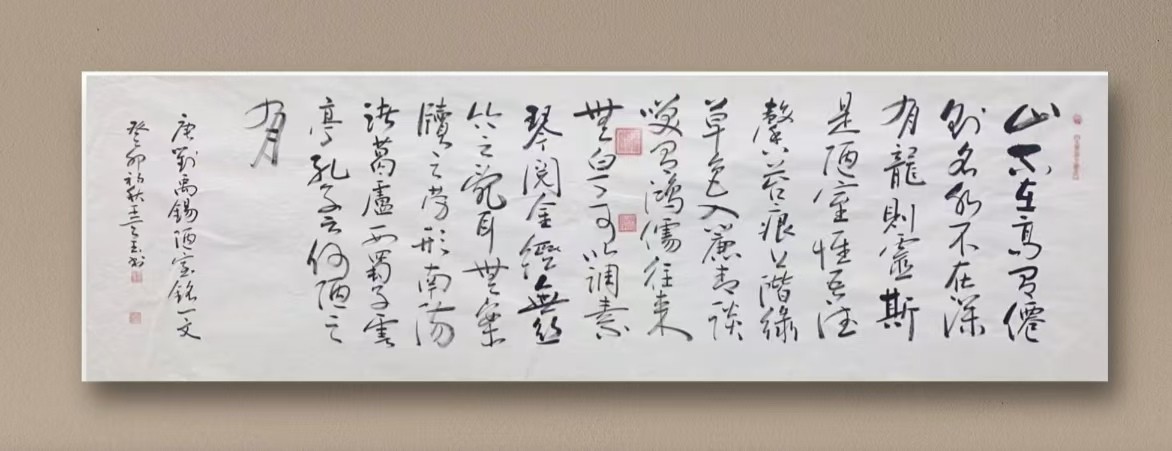 山不在高有僊
則名水不在深
有龍則靈斯
是陋室惟吾德
馨苔痕上階緑
草色入簾青談
笑有鴻儒往来
無白丁可以調素
琴閲金經無絲
竹之亂耳無案
牘之勞形南陽
諸葛廬西蜀子雲
亭孔子云何陋之
有
唐劉禹錫陋室銘一文
癸卯初秋王玉书